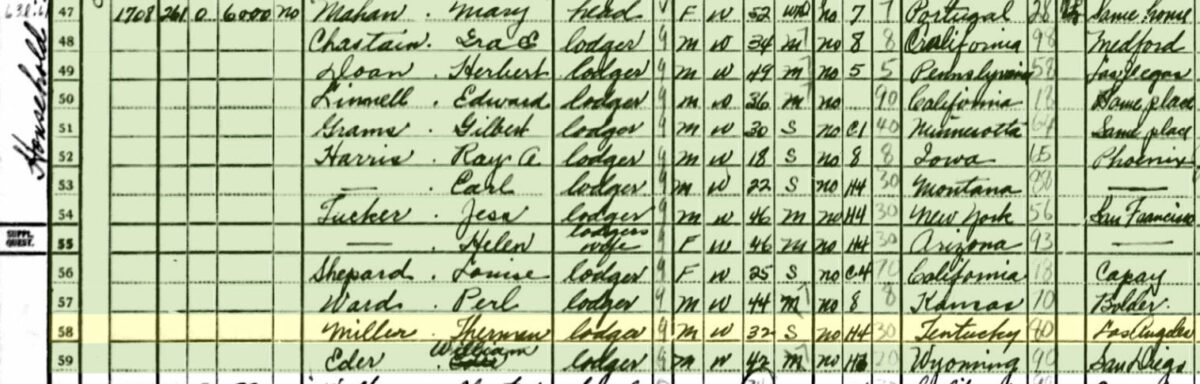 47 1708 261 0 6000 no Mahan. Mary head F W 52 Wd no 7 7 Portugal 28 Same house
48 Chastain. Ira E lodger M W 34 M 7 no 8 8 California 98 Medford
49 Doan. Herbert lodger M W 49 M 7 no 5 5 Pennsylvania 58 Las Vegas
50 Linnell. Edward lodger M W 36 M 7 no 90 California 18 Same place
51 Grams. Gilbert lodger M W 30 S no C1 40 Minnesotta 64 Same place
52 Harris. Ray A. lodger M W 18 S no 8 8 Iowa 65 Phoenix
53 — Carl lodger M W 22 S no H4 30 Montana 80 —
54 Tucker. Jess lodger M W 46 M no H4 30 New York 56 San Francisco
55 — Helen lodgers wife F W 46 M no H4 30 Arizona 93 —
56 Shepard. Louise lodger F W 25 S no C4 70 California 18 Capay
57 Ward. Perl lodger M W 44 M 7 no 8 8 Kansas 10 Bolder
58 Miller. Therman lodger M W 32 S no H4 30 Tentucky 80 Los Angeles
59 Eder William lodger M W 42 M 7 no Wyoming 90 San Diego
Household
SUPPL. QUEST.